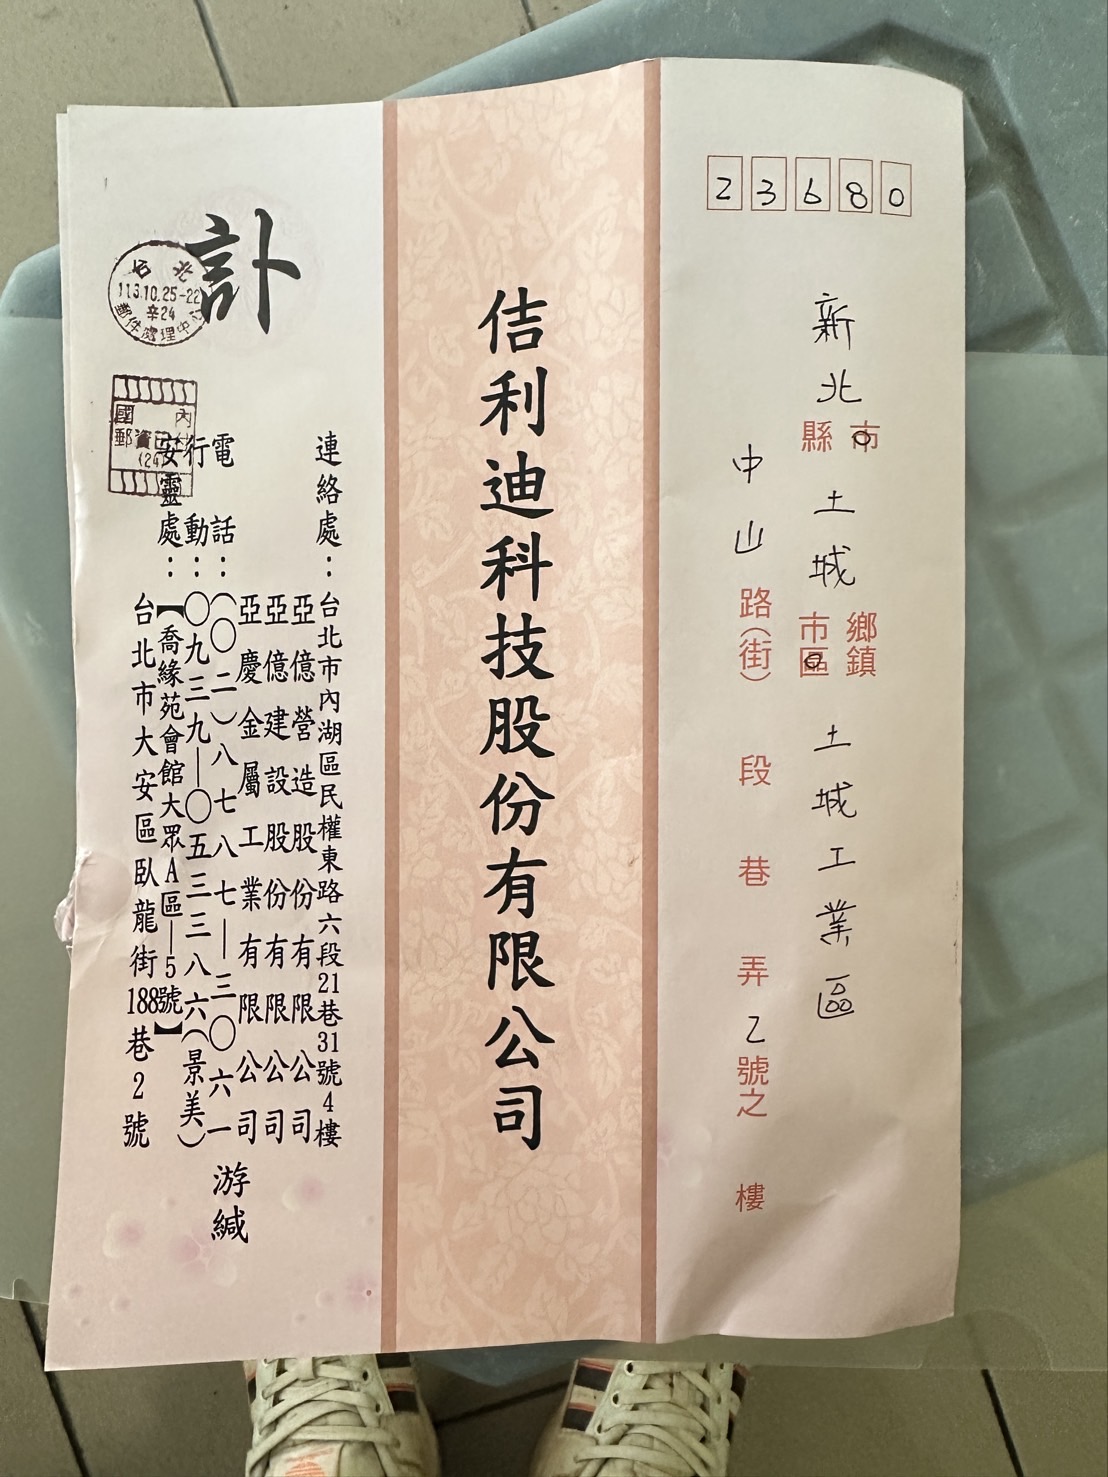 23680
新北縣市土城鄉鎮市區土城工業區
中山路(街)段巷弄乙號之樓
佶利迪科技股份有限公司
訃
連絡處：台北市內湖區民權東路六段21巷31號4樓
亞億營造股份有限公司
亞億建設股份有限公司
亞慶金屬工業有限公司
電話：(〇二)八七八七—三〇六一
行動：〇九三九—〇五三三八六(景美)
安靈處：【喬緣苑會館大眾A區—5號】
台北市大安區臥龍街188巷2號
游緘
台北
113.10.25-22
辛24
郵件處理中心
國內
郵資已付
(24)